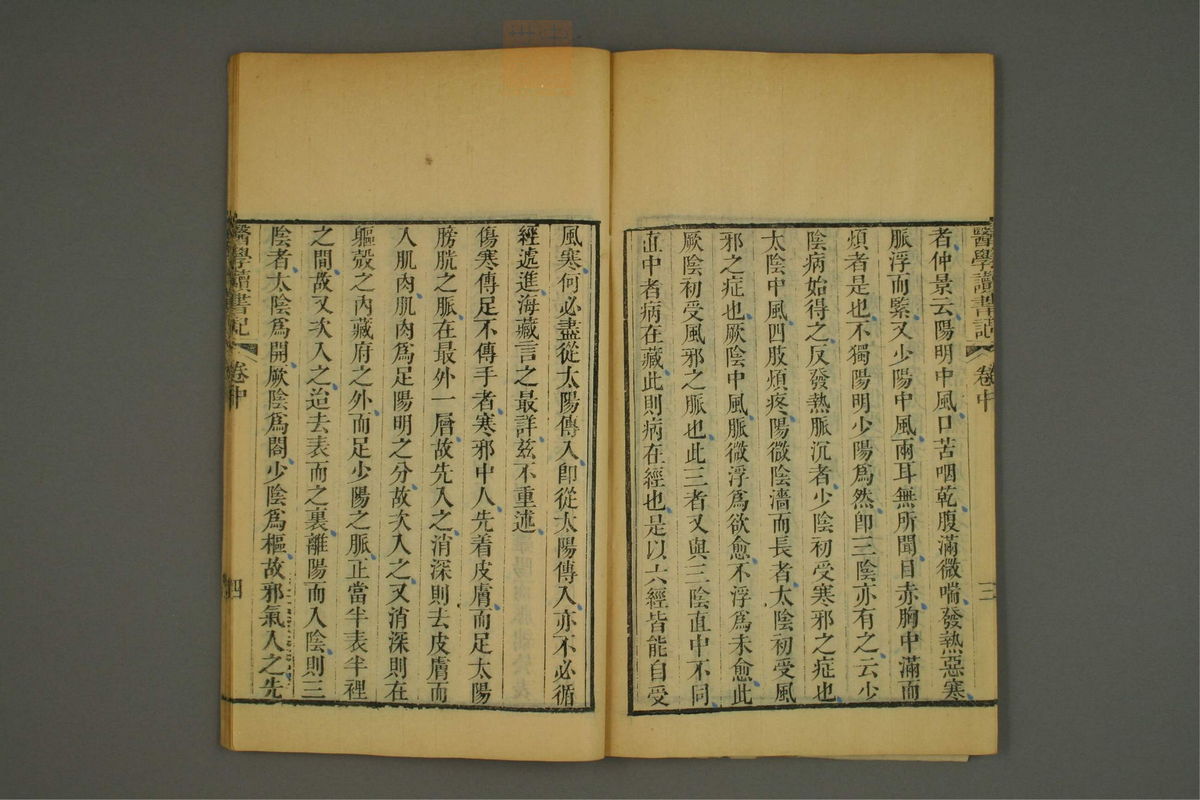 醫學讀書記 卷中 三
者仲景云陽明中風口苦咽乾腹滿微喘發熱惡寒
脈浮而緊又少陽中風兩耳無所聞目赤胸中滿而
煩者是也不獨陽明少陽為然即三陰亦有之云少
陰病始得之反發熱脈沉者少陰初受寒邪之症也
太陰中風四肢煩疼陽微陰濇而長者太陰初受風
邪之症也厥陰中風脈微浮為欲愈不浮為未愈此
厥陰初受風邪之脈也此三者又與三陰直中不同
直中者病在藏此則病在經也是以六經皆能自受
風寒何必盡從太陽傳入即從太陽傳入亦不必循
經遞進海藏言之最詳兹不重述
傷寒傳足不傳手者寒邪中人先着皮膚而足太陽
膀胱之脈在最外一層故先入之消深則去皮膚而
入肌肉肌肉為足陽明之分故次入之又消深則在
軀殼之內藏府之外而足少陽之脈正當半表半裡
之間故又次入之迨去表而之裏離陽而入陰則三
陰者太陰為開厥陰為闔少陰為樞故邪氣入之先
醫學讀書記 卷中 四